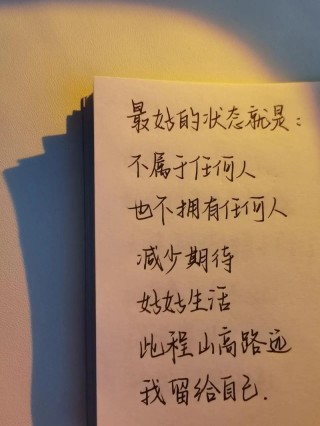 最姑的状态就是：
不属于任何人
也不拥有任何人
减少期待
姑姑生活
此程山高路远
我留给自己.